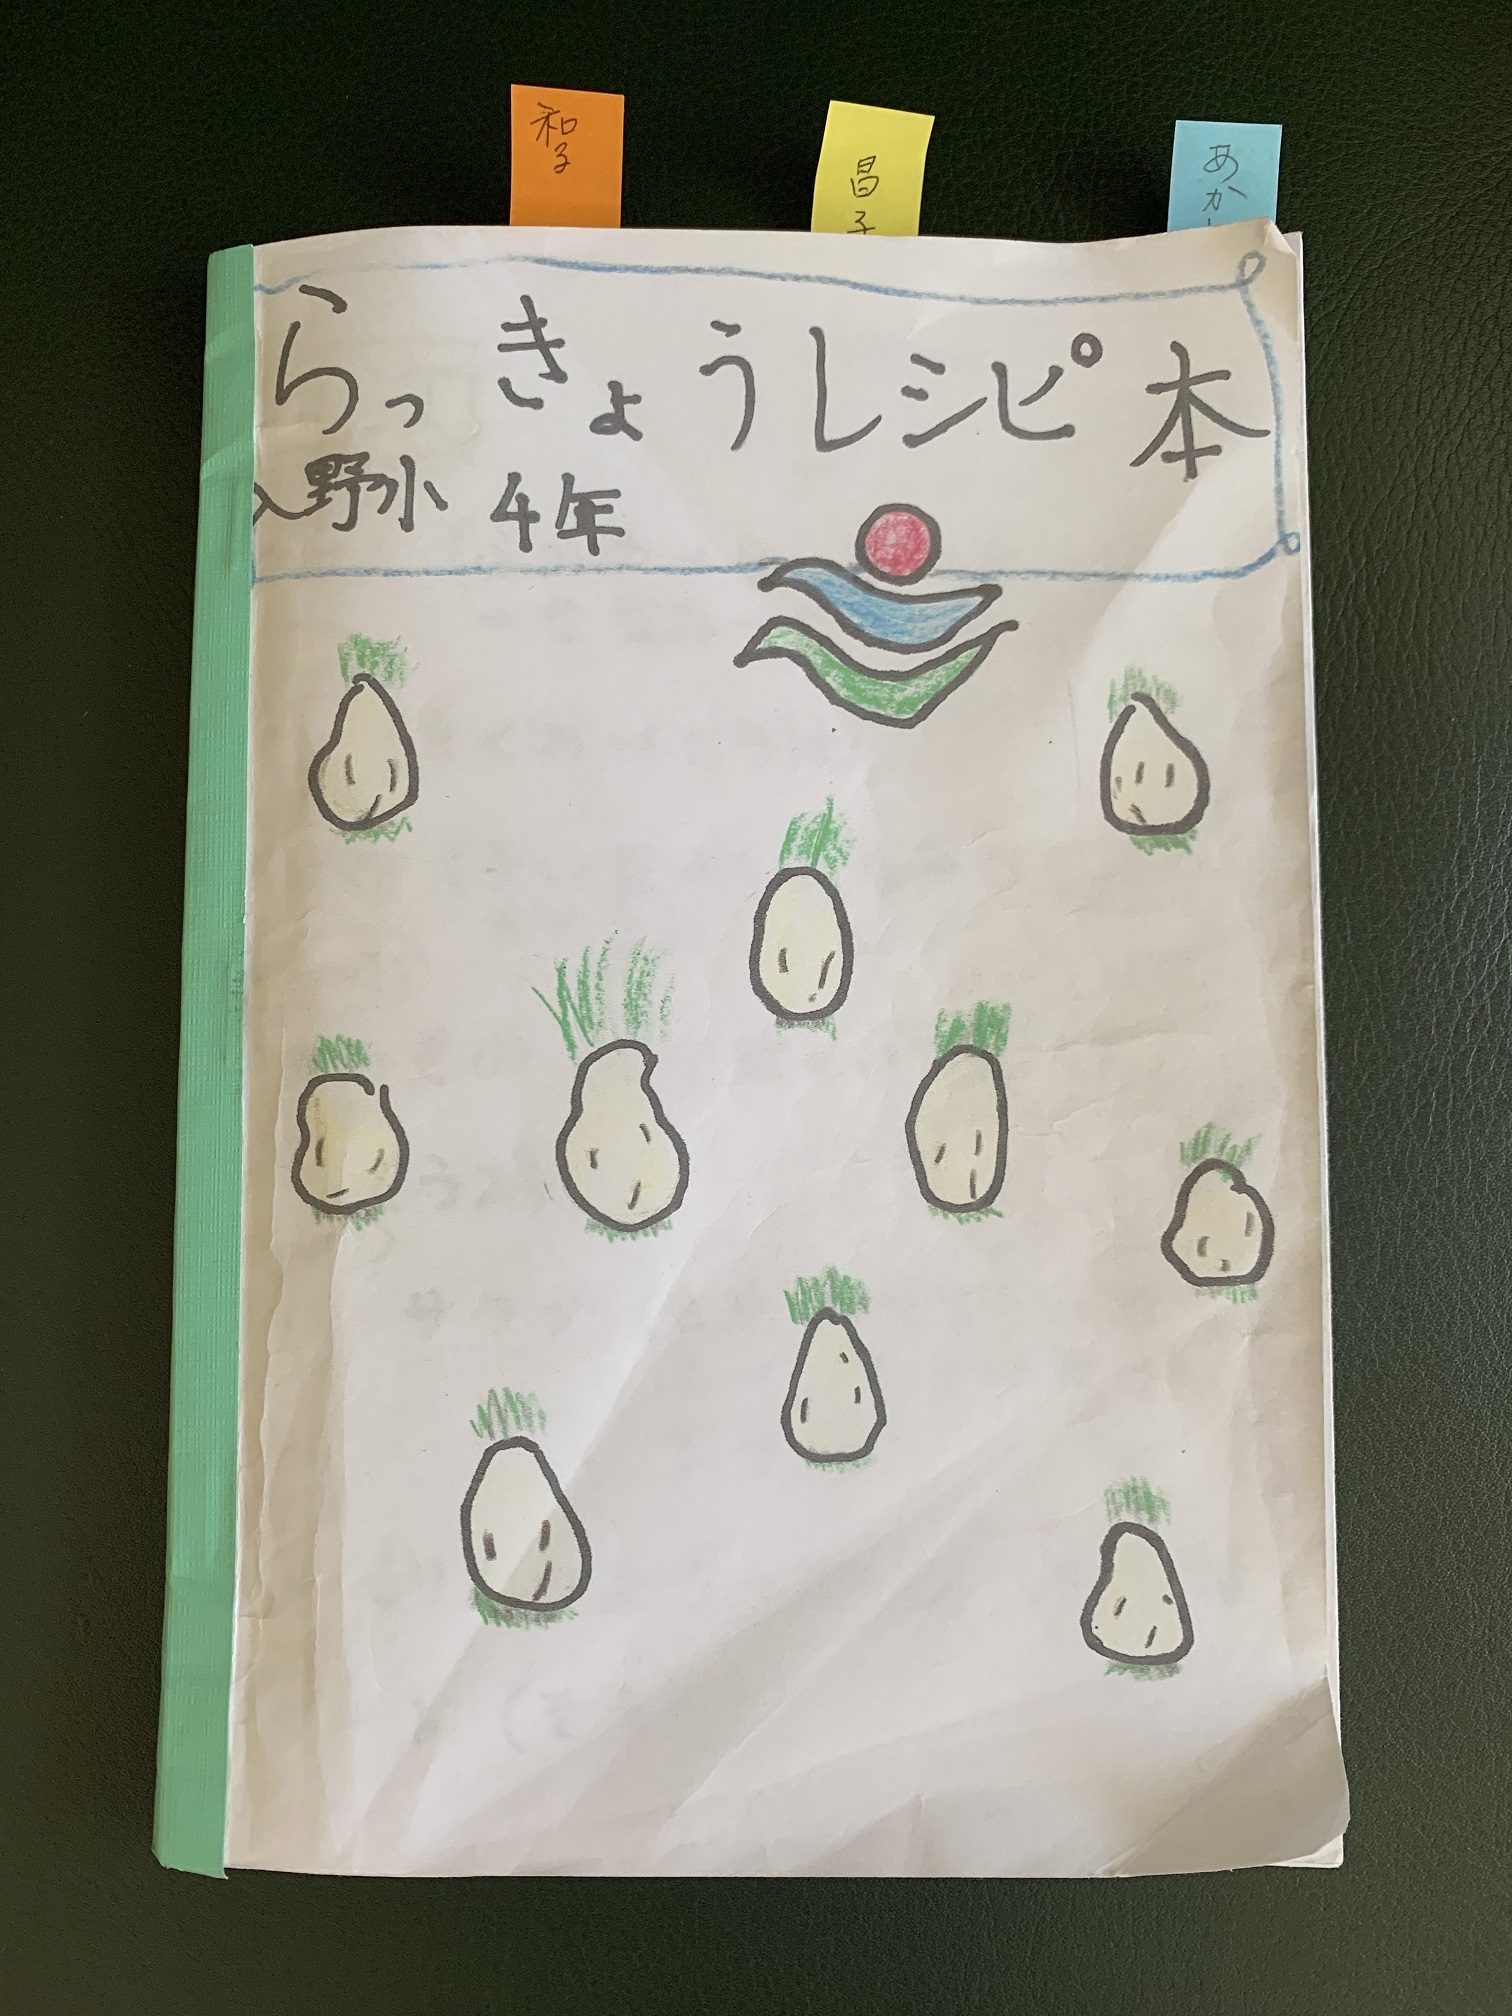 和子
昌子
あか
らっきょうレシピ本
入野小 4年